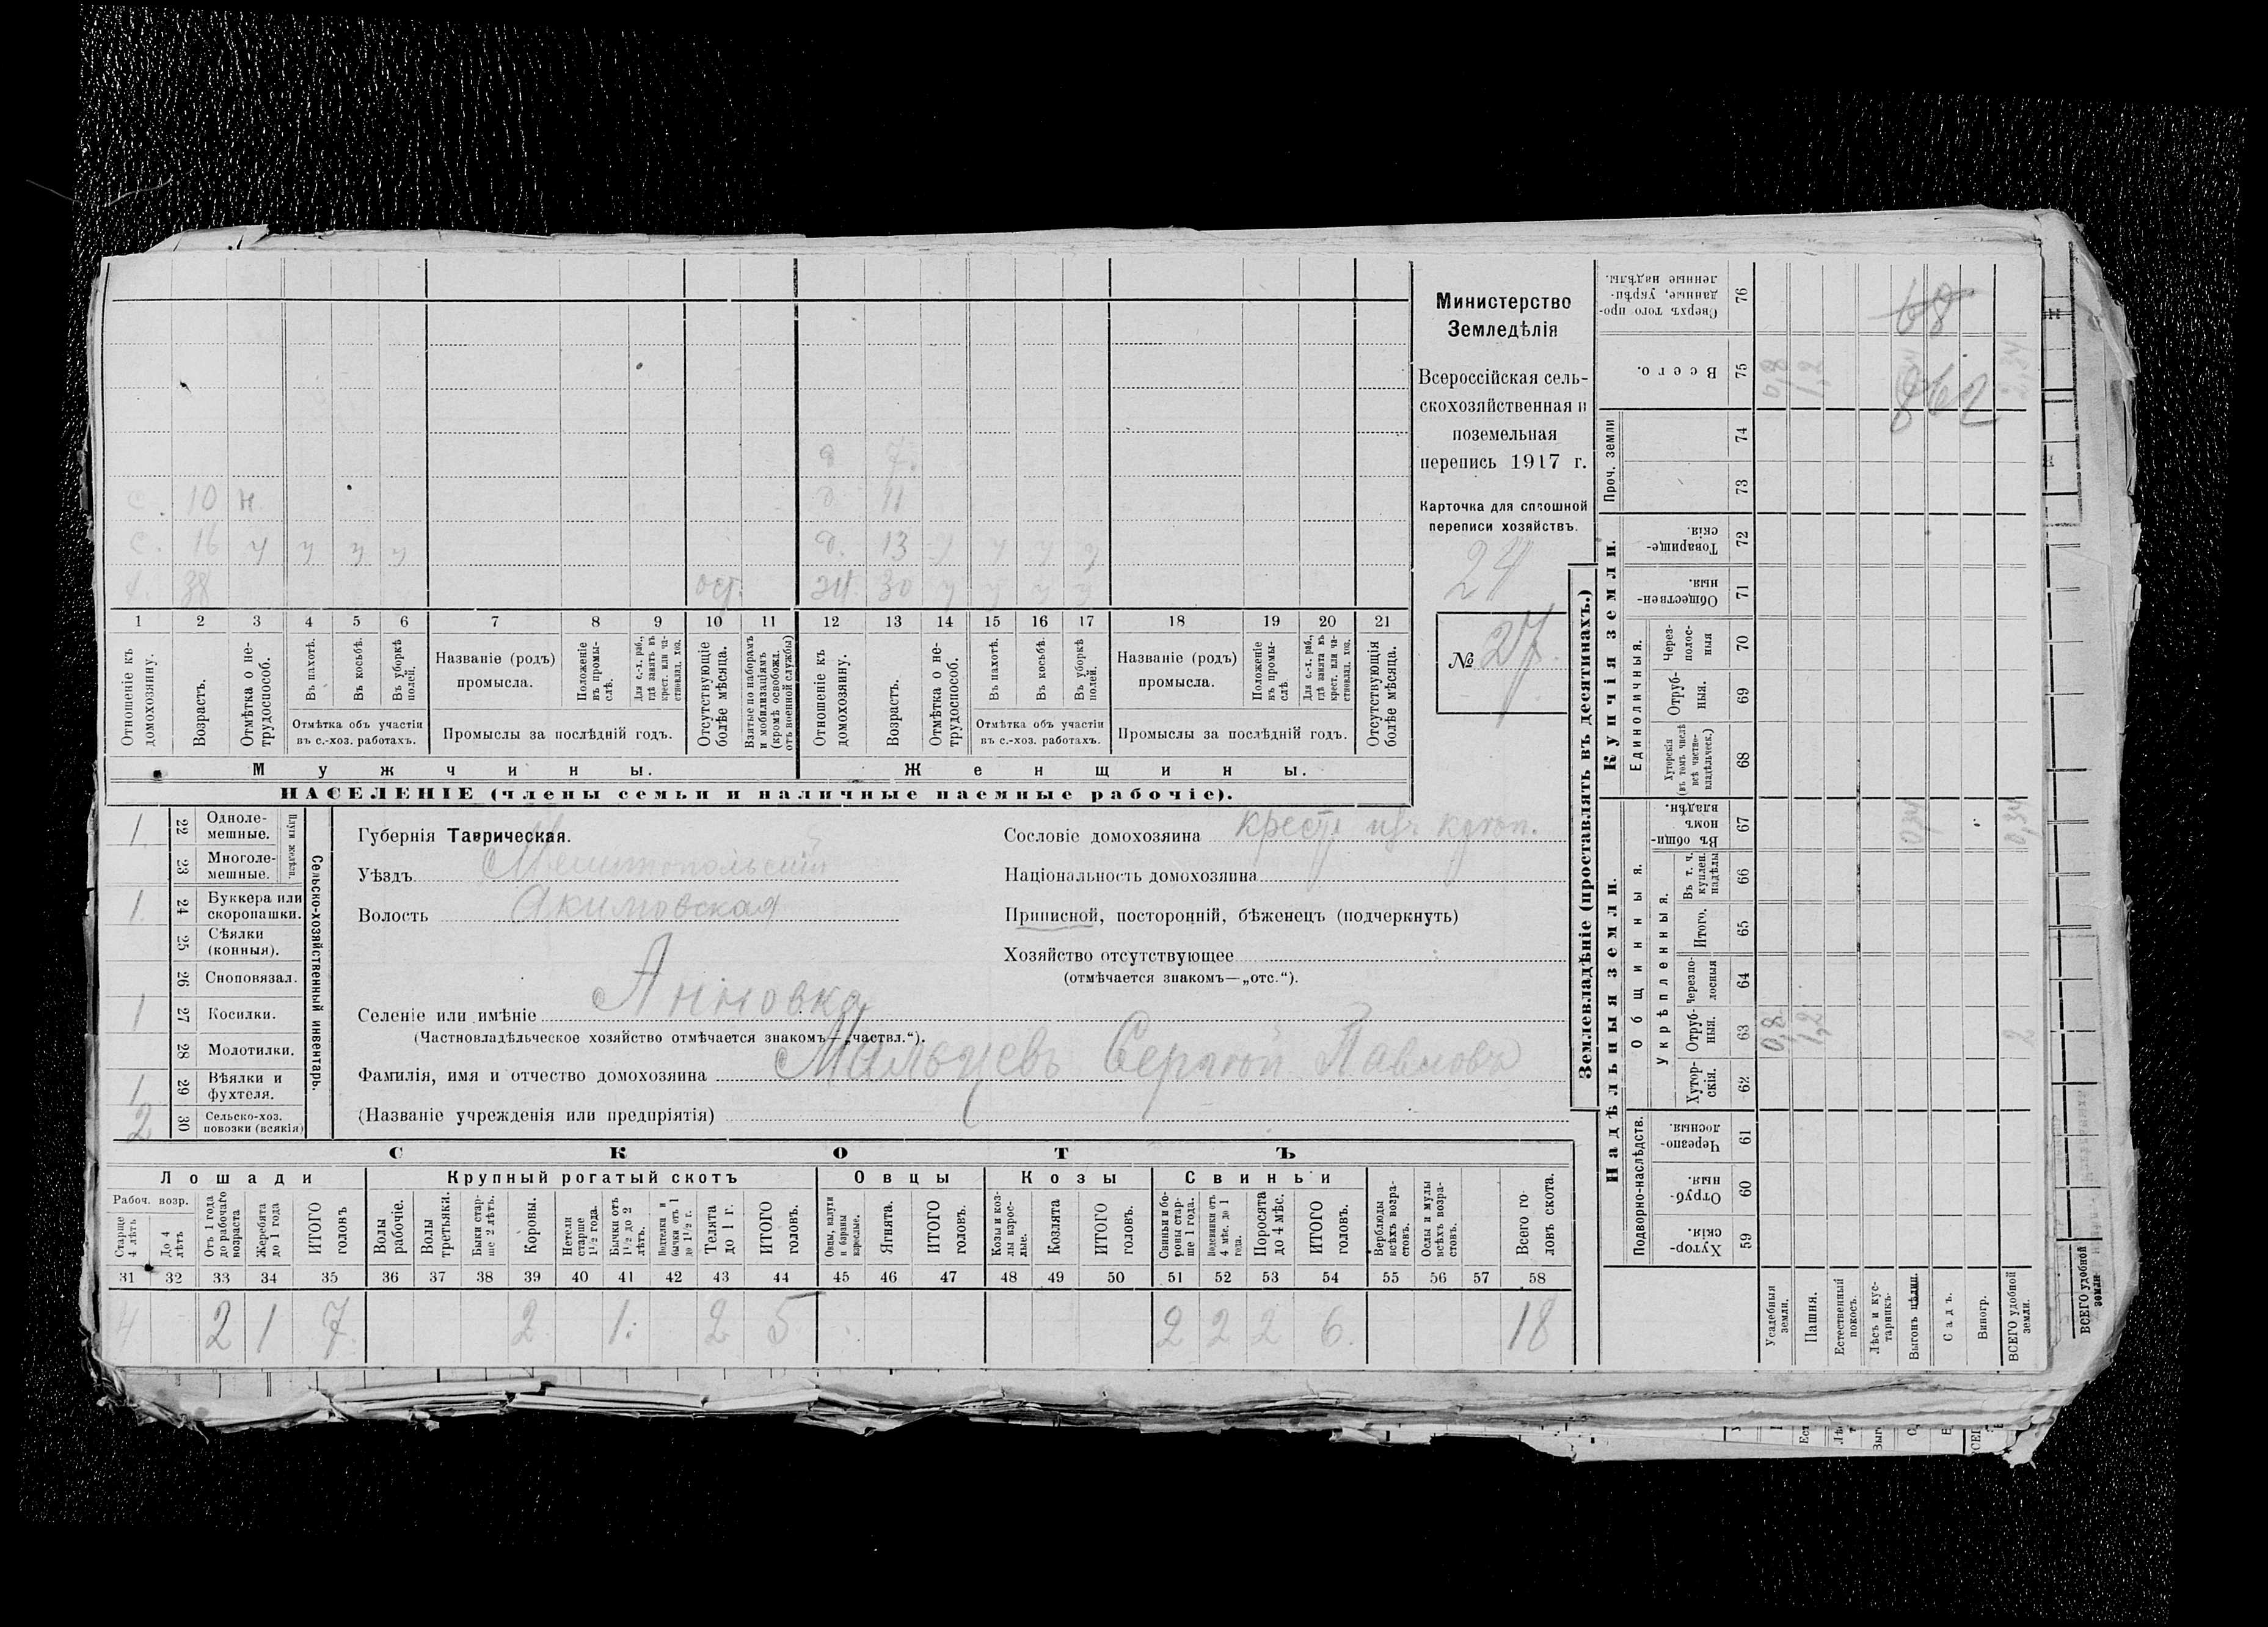 д 7.
с. 10 н д. 11
с. 16 ч ч ч ч д. 13 ч ч ч ч
38 ж. 30 ч ч ч ч
1 2 3 4 5 6 7 8 9 10 11 12 13 14 15 16 17 18 19 20 21
Отношеніе къ домохозяину.
Возрастъ.
Отмѣтка о нетрудоспособ.
Въ пахотѣ.
Въ косьбѣ.
Въ уборкѣ полей.
Отмѣтка объ участіи
въ с.-хоз. работахъ.
Названіе (родъ)
промысла.
Положеніе въ промыслѣ.
Для с.-х. раб., гдѣ занятъ въ крест. или частновлад. хоз.
Промыслы за послѣдній годъ.
Отсутствующіе болѣе мѣсяца.
Взятые по наборамъ и мобилизаціямъ (кромѣ освобожд. отъ военной службы)
Отношеніе къ домохозяину.
Возрастъ.
Отмѣтка о нетрудоспособ.
Въ пахотѣ.
Въ косьбѣ.
Въ уборкѣ полей.
Отмѣтка объ участіи
въ с.-хоз. работахъ.
Названіе (родъ)
промысла.
Положеніе въ промыслѣ
Для с.-х. раб., гдѣ занята въ крест. или частновлад. хоз.
Промыслы за послѣдній годъ.
Отсутствующія болѣе мѣсяца.
Мужчины. Женщины.
НАСЕЛЕНІЕ (члены семьи и наличные наемные рабочіе).
Министерство
Земледѣлія
Всероссійская сель-
скохозяйственная и
поземельная
перепись 1917 г.
Карточка для сплошной
переписи хозяйствъ.
24
№ 27.
Сельско-хозяйственный инвентарь.
Плуги желѣзн.
1. 22 Одноле-
мешные.
23 Многоле-
мешные.
1. 24 Буккера или
скоропашки.
25 Сѣялки
(конныя).
26 Сноповязал.
1 27 Косилки.
28 Молотилки.
1 29 Вѣялки и
фухтеля.
2 30 Сельско-хоз.
повозки (всякія)
Губернія Таврическая.
Уѣздъ Мелитопольскій
Волость Акимовская
Селеніе или имѣніе Анновка
(Частновладѣльческое хозяйство отмѣчается знакомъ—„частвл.“).
Фамилія, имя и отчество домохозяина Мальцевъ Сергѣй Павловъ
(Названіе учрежденія или предпріятія)
Сословіе домохозяина
Національность домохозяина
Приписной, посторонній, бѣженецъ (подчеркнуть)
Хозяйство отсутствующее
(отмѣчается знакомъ—„отс.“).
СКОТЪ
Лошади Крупный рогатый скотъ Овцы Козы Свиньи
Рабоч. возр.
Старше 4 лѣтъ
До 4 лѣтъ
Отъ 1 года до рабочаго возраста
Жеребята до 1 года
ИТОГО головъ
Волы рабочіе.
Волы третьяки.
Быки старше 2 лѣтъ.
Коровы.
Нетели старше 1½ года.
Бычки отъ 1½ до 2 лѣтъ.
Телки и бычки отъ 1 до 1½ г.
Телята до 1 г.
ИТОГО головъ.
Овцы, валухи и бараны взрослые.
Ягнята.
ИТОГО головъ.
Козы и козлы взрослые.
Козлята
ИТОГО головъ.
Свиньи и боровы старше 1 года.
Подсвинки отъ 4 мѣс. до 1 года.
Поросята до 4 мѣс.
ИТОГО головъ.
Верблюды всѣхъ возрастовъ.
Ослы и мулы всѣхъ возрастовъ.
Всего головъ скота.
31 32 33 34 35 36 37 38 39 40 41 42 43 44 45 46 47 48 49 50 51 52 53 54 55 56 57 58
4 2 1 7. 2 1. 2 5 2 2 2 6. 18
Землевладѣніе (проставлять въ десятинахъ.)
Надѣльныя земли. Купчія земли. Проч. земли
Подворно-наслѣдств. Общинныя. Единоличныя.
Укрѣпленныя.
Хуторскія. 59
Отрубныя. 60
Черезполосныя 61
Хуторскія. 62
Отрубныя. 63
Черезполосныя 64
Итого. 65
Въ т. ч. куплен. надѣлы 66
Въ общинномъ владѣн. 67
Хуторскія (въ томъ числѣ всѣ частновладѣльческ.) 68
Отрубныя. 69
Черезполосныя 70
Общественныя. 71
Товарищескія. 72
73
74
Всего. 75
Сверхъ того проданные, укрѣпленные надѣлы. 76
Усадебныя земли. 0,8 0,8
Пашня. 1,2 1,2
Естественный покосъ.
Лѣсъ и кустарникъ.
Выгонъ цѣлин. 0,34 0,34
Садъ.
Виногр.
ВСЕГО удобной земли. 2 0,34 2,34
68
ВСЕГО удобной земли